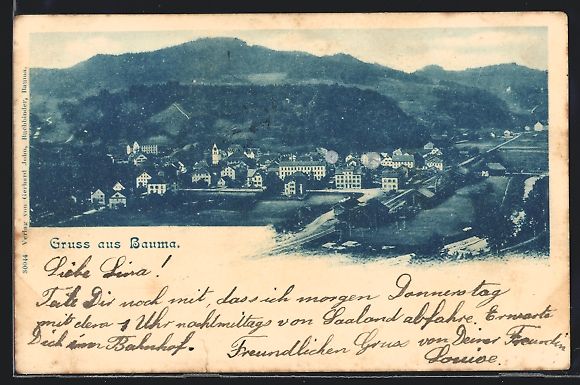 30044 Verlag von Gerhard John, Buchbinder, Bauma.
Gruss aus Bauma.
Liebe Lina!
Teile Dir noch mit, dass ich morgen Donnerstag
mit dem 1 Uhr nachmittags von Saaland abfahre. Erwarte
Dich am Bahnhof.
Freundlichen Gruss von Deiner Freundin
Louise.